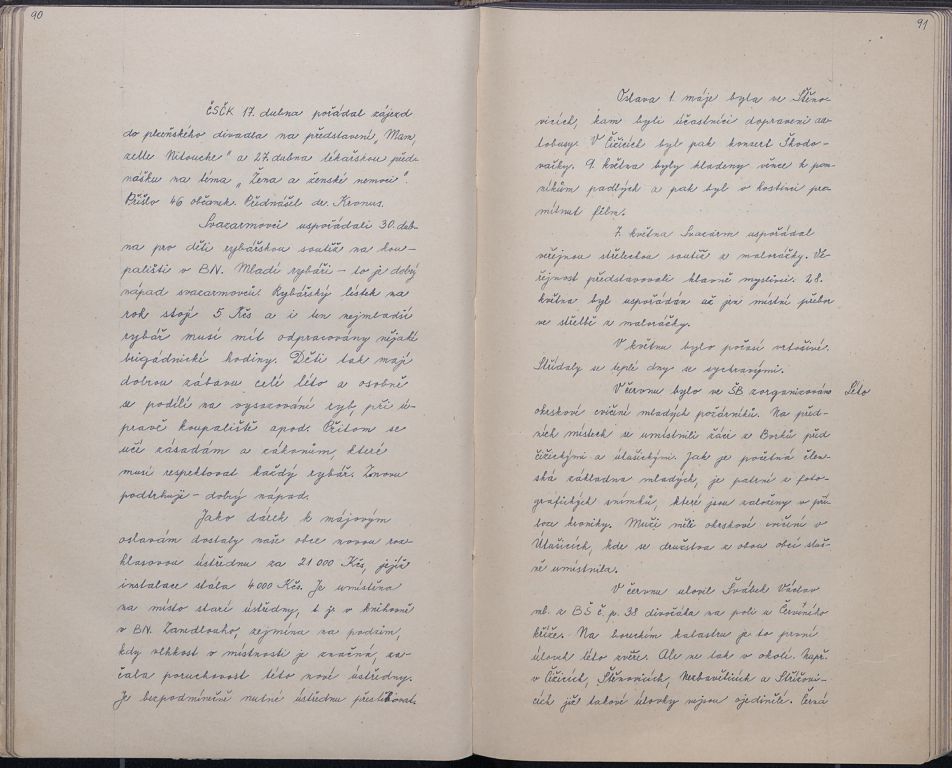 90
ČSČK 17. dubna pořádal zájezd
do plzeňského divadla na představení „Mam,
zelle Nitouche" a 27. dubna lékařskou před-
nášku na téma „Žena a ženské nemoci".
Přišlo 46 občanek. Přednášel dr. Kronus.
Svazarmovci uspořádali 30. dub-
na pro děti rybářskou soutěž na kou-
pališti v BN. Mladí rybáři - to je dobrý
nápad svazarmovců. Rybářský lístek na
rok stojí 5 Kčs a i ten nejmladší
rybář musí mít odpracovány nějaké
brigádnické hodiny. Děti tak mají
dobrou zábavu celé léto a osobně
se podílí na vysazování ryb, při ú-
pravě koupaliště apod. Přitom se
učí zásadám a zákonům, které
musí respektovat každý rybář. Znovu
podtrhuji - dobrý nápad.
Jako dárek k májovým
oslavám dostaly naše obce novou roz-
hlasovou ústřednu za 21 000 Kčs, její
instalace stála 4 000 Kčs. Je umístěna
na místo staré ústředny, t. j. v knihovně
v BN. Zanedlouho, zejména na podzim,
kdy vlhkost v místnosti je značná, za-
čala poruchovost této nové ústředny.
Je bezpodmínečně nutné ústřednu přestěhovat.
91
Oslava 1. máje byla ve Štěno-
vicích, kam byli účastníci dopraveni au-
tobusy. V Čižicích byl pak koncert Škodo-
vačky. 9. května byly kladeny věnce k pom-
níkům padlých a pak byl v hostinci pro-
mítnut film.
7. května Svazarm uspořádal
veřejnou střeleckou soutěž z malorážky. Ve-
řejnost představovali hlavně myslivci. 28.
května byl uspořádán už jen místní přebor
ve střelbě z malorážky.
V květnu bylo počasí vrtošivé.
Střídaly se teplé dny se sychravými.
V červnu bylo ve ŠB zorganizováno Léto
okrskové cvičení mladých požárníků. Na před-
ních místech se umístnili žáci z Borků před
čižickými a útušickými. Jak je početná člen-
ská základna mladých, je patrné z foto-
grafických snímků, které jsou založeny v pří-
loze kroniky. Muži měli okrskové cvičení v
Útušicích, kde se družstva z obou obcí sluš-
ně umístnila.
V červnu ulovil Švábek Václav
ml. z BŠ č. p. 38 divočáka na poli u Červeného
kříže. Na boreckém katastru je to první
úlovek této zvěře. Ale ne tak v okolí. Např.
v Čižicích, Štěnovicích, Nezbavěticích a Střížovi-
cích již takové úlovky nejsou ojedinělé. Černá